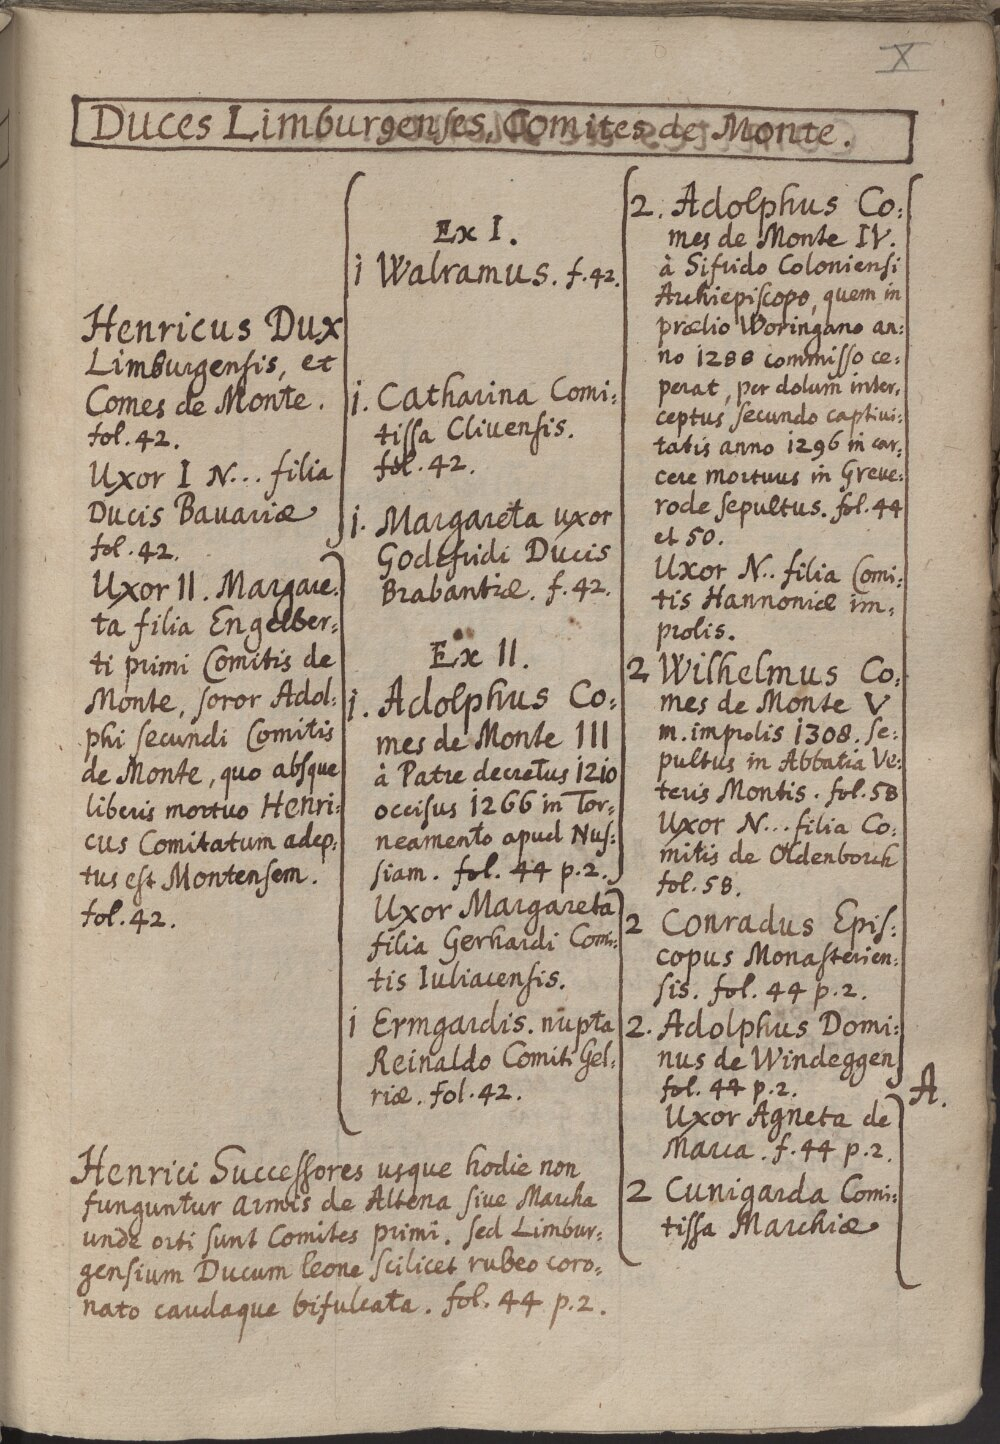 X
Duces Limburgenses, Comites de Monte.
Henricus Dux
Limburgensis, et
Comes de Monte.
fol. 42.
Uxor I N... filia
Ducis Bavariæ
fol. 42.
Uxor II. Margare:
ta filia Engelber:
ti primi Comitis de
Monte, soror Adol:
phi secundi Comitis
de Monte, quo absque
liberis mortuo Henri:
cus Comitatum adep:
tus est Montensem.
fol. 42.
Ex I.
i Walramus. f. 42.
i. Catharina Comi:
tissa Clivensis.
fol. 42.
i. Margareta uxor
Godefridi Ducis
Brabantiæ. f. 42.
Ex II.
i. Adolphus Co:
mes de Monte III
à Patre decretus 1210
occisus 1266 in Tor:
neamento apud Nus:
siam. fol. 44 p. 2.
Uxor Margareta
filia Gerhardi Comi:
tis Iuliacensis.
i Ermgardis. nupta
Reinaldo Comiti Gel:
riæ. fol. 42.
2. Adolphus Co:
mes de Monte IV.
à Sifrido Coloniensi
Archiepiscopo, quem in
prælio Woringano an:
no 1288 commisso ce:
perat, per dolum inter:
ceptus secundo captivi:
tatis anno 1296 in car:
cere mortuus in Greve:
rode sepultus. fol. 44
et 50.
Uxor N.. filia Comi:
tis Hannoniæ im:
prolis.
2 Wilhelmus Co:
mes de Monte V
m. improlis 1308. se:
pultus in Abbatia Ve:
teris Montis. fol. 58
Uxor N... filia Co:
mitis de Oldenborch
fol. 58.
2 Conradus Epis:
copus Monasterien:
sis. fol. 44 p. 2.
2. Adolphus Domi:
nus de Windeggen
fol. 44 p. 2.
Uxor Agneta de
Marca. f. 44 p. 2.
2 Cunigarda Comi:
tissa Marchiæ
A.
Henrici Successores usque hodie non
funguntur armis de Altena sive Marcha
unde orti sunt Comites primi. sed Limbur:
gensium Ducum leone scilicet rubeo coro:
nato caudaque bifulcata. fol. 44 p. 2.